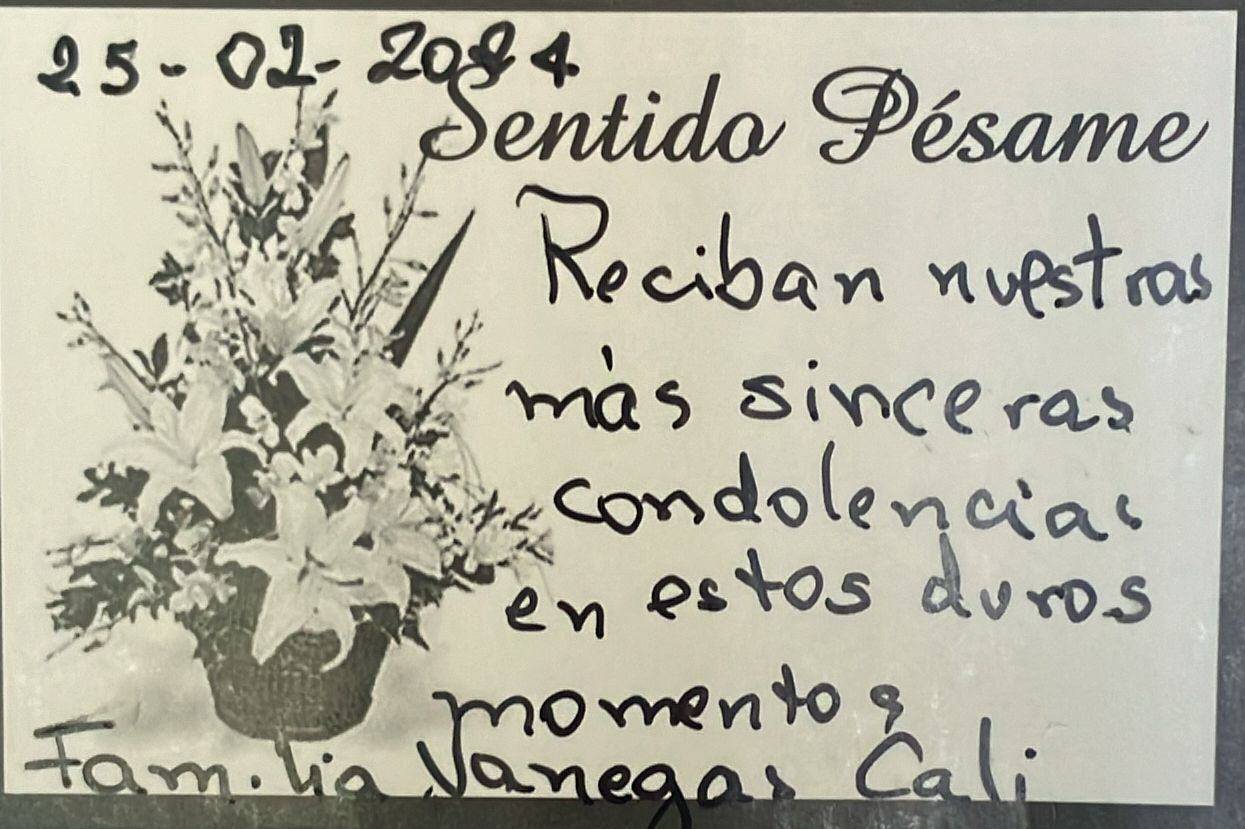 25-02-2024
Sentido Pésame
Reciban nuestras
más sinceras
condolencias
en estos duros
momentos
Familia Vanegas Cali